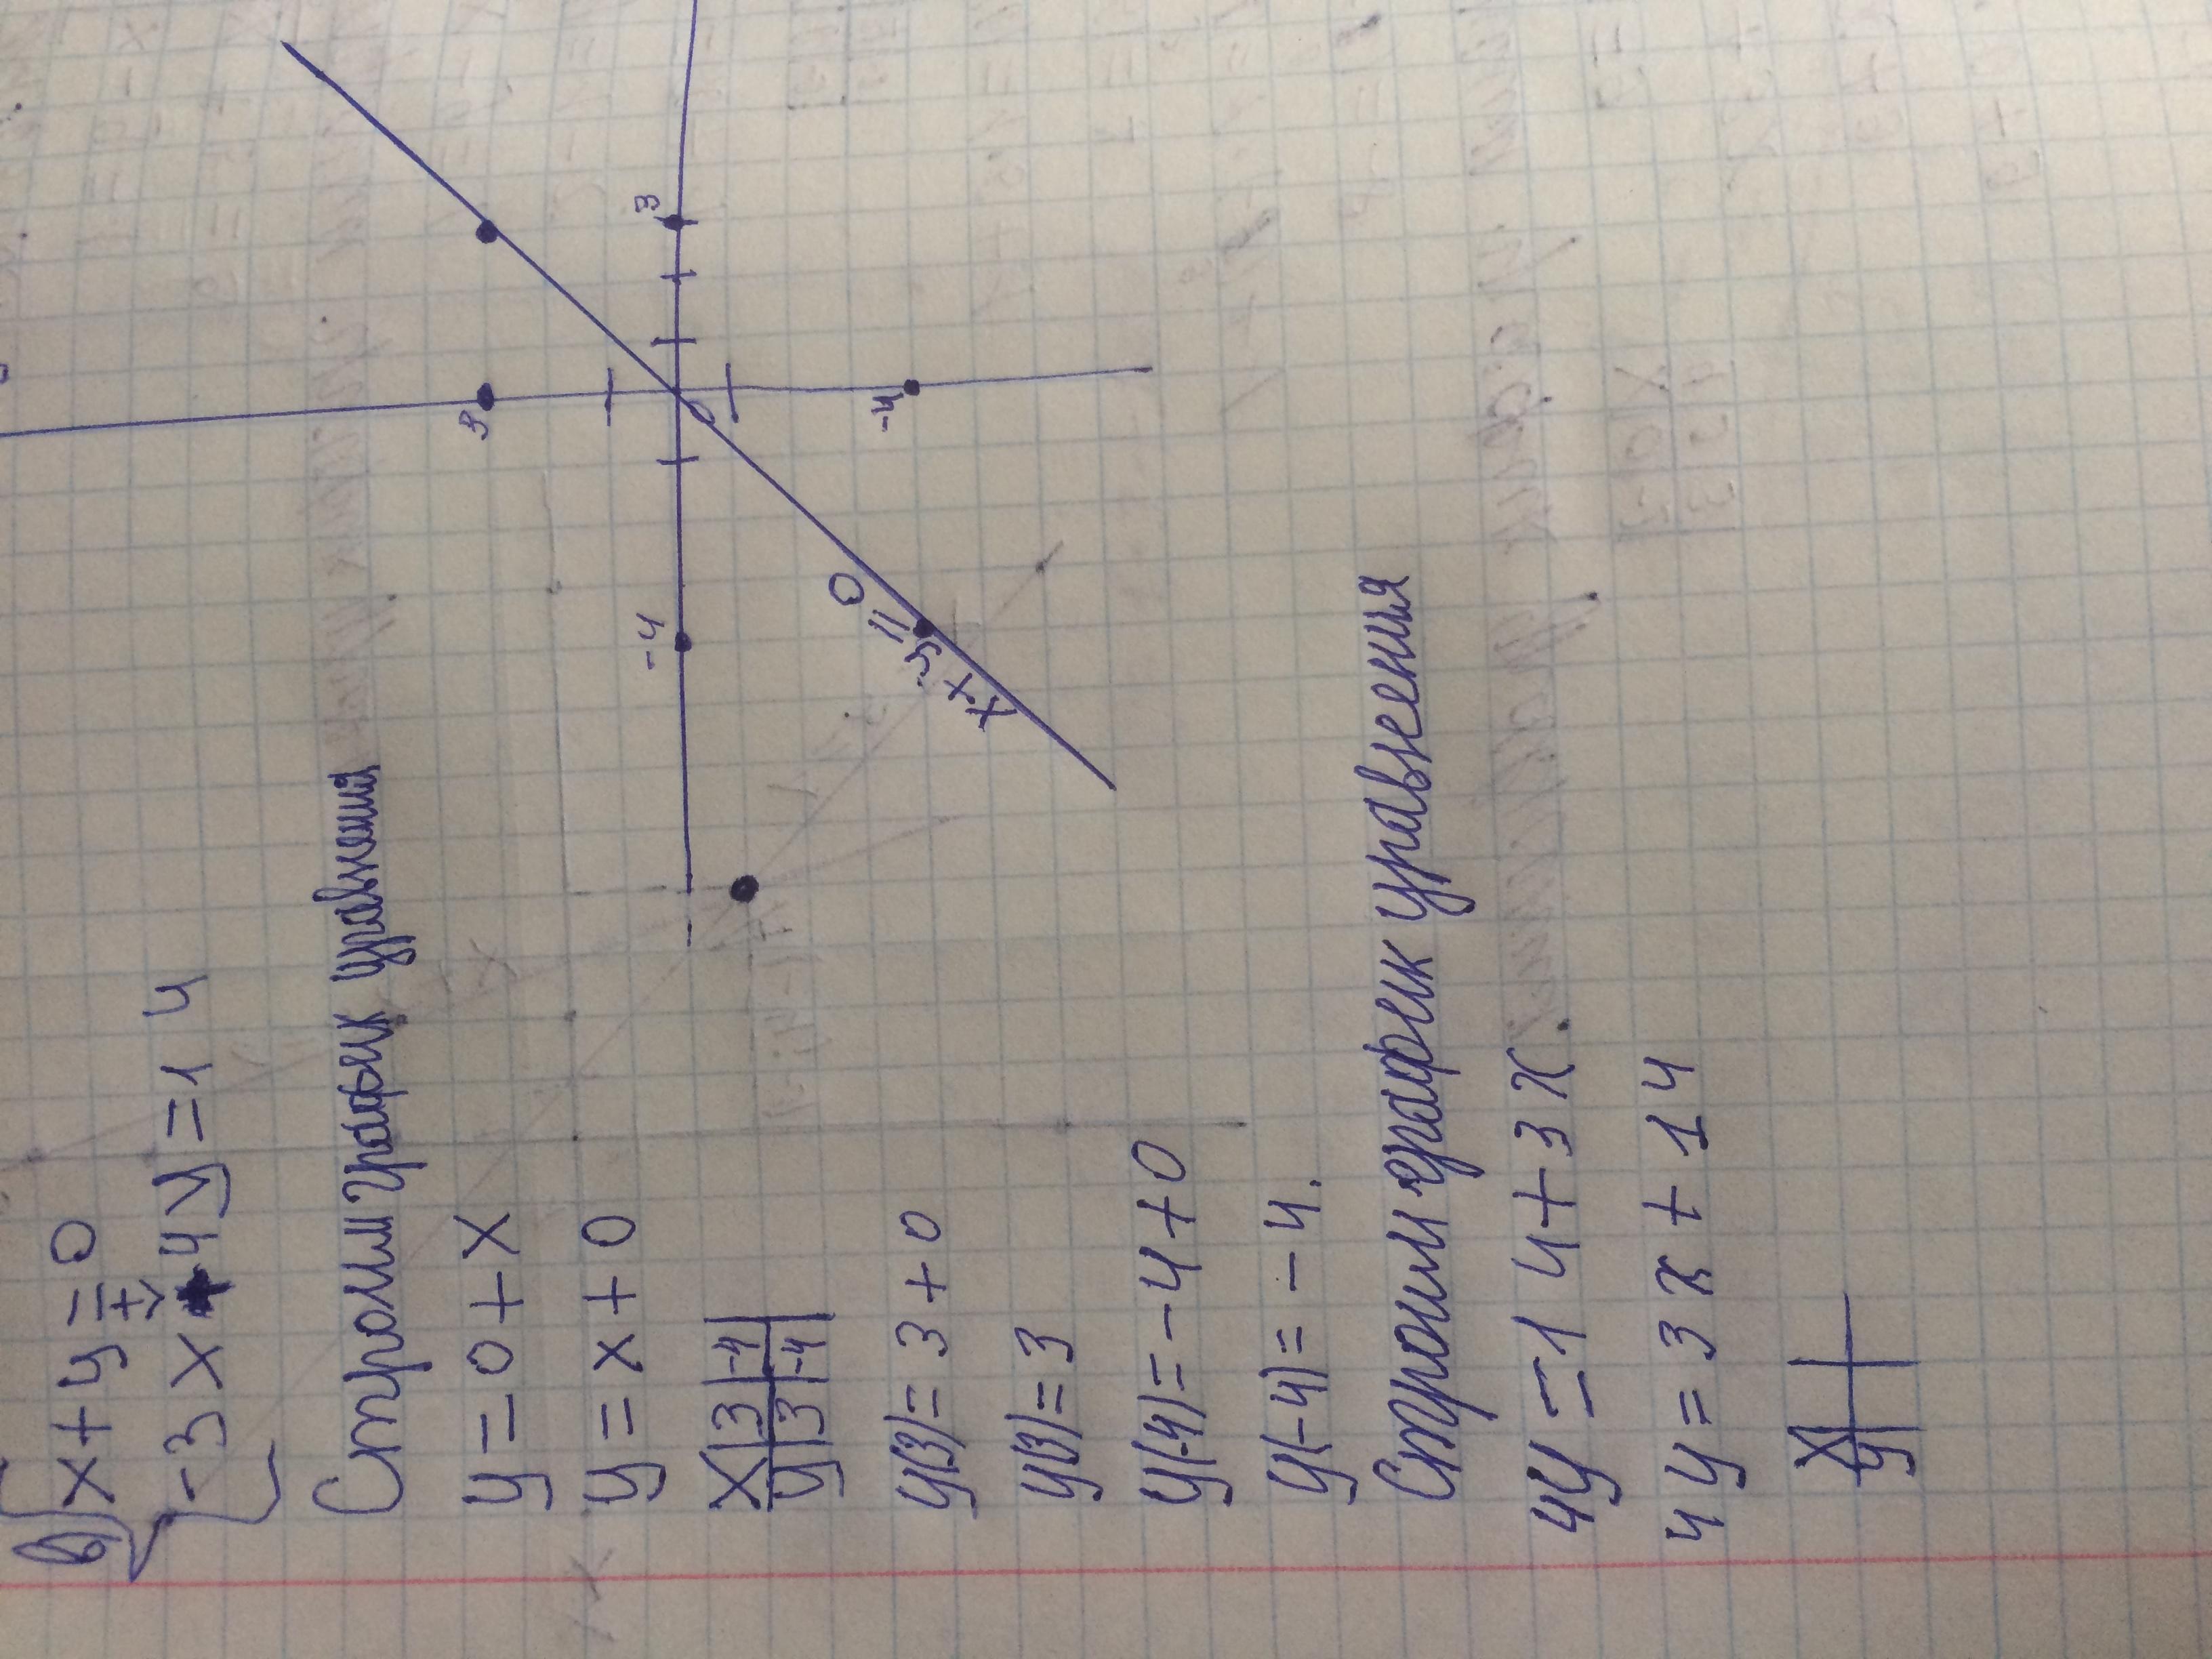 в) x+y=0
-3x+4y=14
Строим график уравнения
y=0+x
y=x+0
x|3|-4|
y|3|-4|
y(3)=3+0
y(3)=3
y(-4)=-4+0
y(-4)=-4.
Строим график уравнения
4y=14+3x
4y=3x+14
x
y
3
3
-4
0
-4
x+y=0